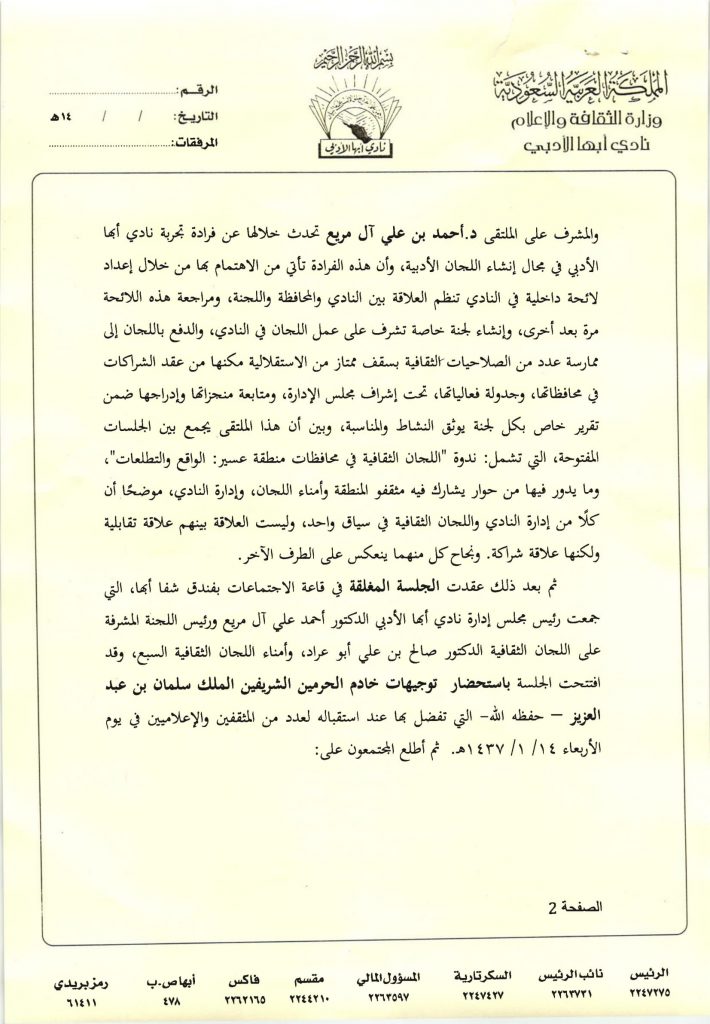 بسم الله الرحمن الرحيم
المملكة العربية السعودية
وزارة الثقافة والإعلام
نادي أبها الأدبي
نادي أبها الأدبي
الرقم:
التاريخ: / / ١٤هـ
المرفقات:
والمشرف على الملتقى د.أحمد بن علي آل مريع تحدث خلالها عن فرادة تجربة نادي أبها
الأدبي في مجال إنشاء اللجان الأدبية، وأن هذه الفرادة تأتي من الاهتمام بها من خلال إعداد
لائحة داخلية في النادي تنظم العلاقة بين النادي والمحافظة واللجنة، ومراجعة هذه اللائحة
مرة بعد أخرى، وإنشاء لجنة خاصة تشرف على عمل اللجان في النادي، والدفع باللجان إلى
ممارسة عدد من الصلاحيات الثقافية بسقف ممتاز من الاستقلالية مكنها من عقد الشراكات
في محافظاتها، وجدولة فعالياتها، تحت إشراف مجلس الإدارة، ومتابعة منجزاتها وإدراجها ضمن
تقرير خاص بكل لجنة يوثق النشاط والمناسبة، وبين أن هذا الملتقى يجمع بين الجلسات
المفتوحة، التي تشمل: ندوة "اللجان الثقافية في محافظات منطقة عسير: الواقع والتطلعات"،
وما يدور فيها من حوار يشارك فيه مثقفو المنطقة وأمناء اللجان، وإدارة النادي، موضحًا أن
كلًا من إدارة النادي واللجان الثقافية في سياق واحد، وليست العلاقة بينهم علاقة تقابلية
ولكنها علاقة شراكة. ونجاح كل منهما ينعكس على الطرف الآخر.
ثم بعد ذلك عقدت الجلسة المغلقة في قاعة الاجتماعات بفندق شفا أبها، التي
جمعت رئيس مجلس إدارة نادي أبها الأدبي الدكتور أحمد علي آل مريع ورئيس اللجنة المشرفة
على اللجان الثقافية الدكتور صالح بن علي أبو عراد، وأمناء اللجان الثقافية السبع، وقد
افتتحت الجلسة باستحضار توجيهات خادم الحرمين الشريفين الملك سلمان بن عبد
العزيز – حفظه الله- التي تفضل بها عند استقباله لعدد من المثقفين والإعلاميين في يوم
الأربعاء ١٤/ ١/ ١٤٣٧هـ. ثم أطلع المجتمعون على:
الصفحة 2
الرئيس نائب الرئيس السكرتارية المسؤول المالي مقسم فاكس أبها ص.ب رمز بريدي
٢٢٤٧٢٧٥ ٢٢٦٣٧٣١ ٢٢٤٧٤٢٧ ٢٢٦٣٥٩٧ ٢٢٤٤٢١٠ ٢٢٦٢١٦٥ ٤٧٨ ٦١٤١١